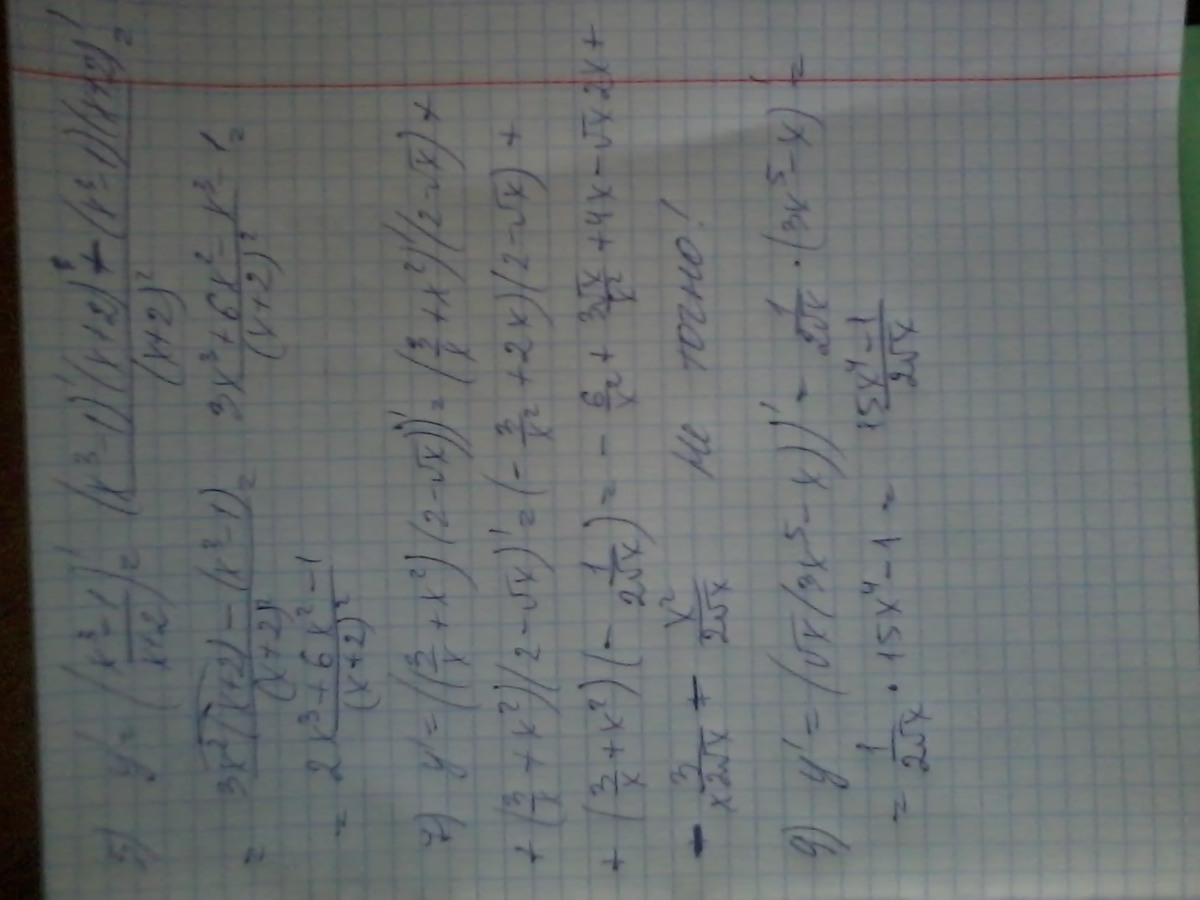 5) y' = ((x³-1)/(x+2))' = ((x³-1)'(x+2) - (x³-1)(x+2)')/(x+2)² =
= (3x²(x+2) - (x³-1))/(x+2)² = (3x³+6x² - x³ - 1)/(x+2)² =
= (2x³+6x²-1)/(x+2)²
7) y' = ((3/x + x²)(2-√x))' = (3/x + x²)'(2-√x) +
+ (3/x + x²)(2-√x)' = (-3/x² + 2x)(2-√x) +
+ (3/x + x²)(-1/(2√x)) = -6/x² + 3√x/x² + 4x - √x 2x +
- 3/(x2√x) - x²/(2√x) Не точно!
9) y' = (√x(3x⁵-x))' = 1/(2√x) · (3x⁵-x)' =
= 1/(2√x) · 15x⁴-1 = (15x⁴-1)/(2√x)